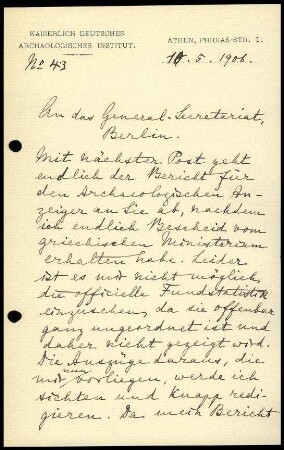 KAISERLICH DEUTSCHES
ARCHAOLOGISCHES INSTITUT.
ATHEN, PHIDIAS-STR. 1.
No 43
10. 5. 1906.
An das General-Secretariat,
Berlin.
Mit nächster Post geht
endlich der Bericht für
den Archaeologischen An-
zeiger an Sie ab, nachdem
ich endlich Bescheid vom
griechischen Ministerium
erhalten habe. Leider
ist es mir nicht möglich,
die officielle Fundstatistik
einzusehen, da sie offenbar
ganz ungeordnet ist und
daher nicht gezeigt wird.
Die Auszüge daraus, die
mir nun vorliegen, werde ich
sichten und knapp redi-
gieren. Da mein Bericht